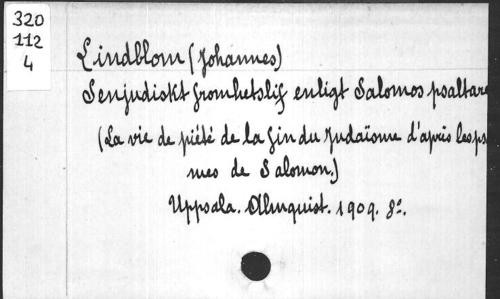 320
112
4
Lindblom (Johannes)
Senjudiskt fromhetslif enligt Salomos psaltare
(La vie de piété de la fin du Judaïsme d'après les ps
mes de Salomon.)
Uppsala. Almquist. 1909. 8º.